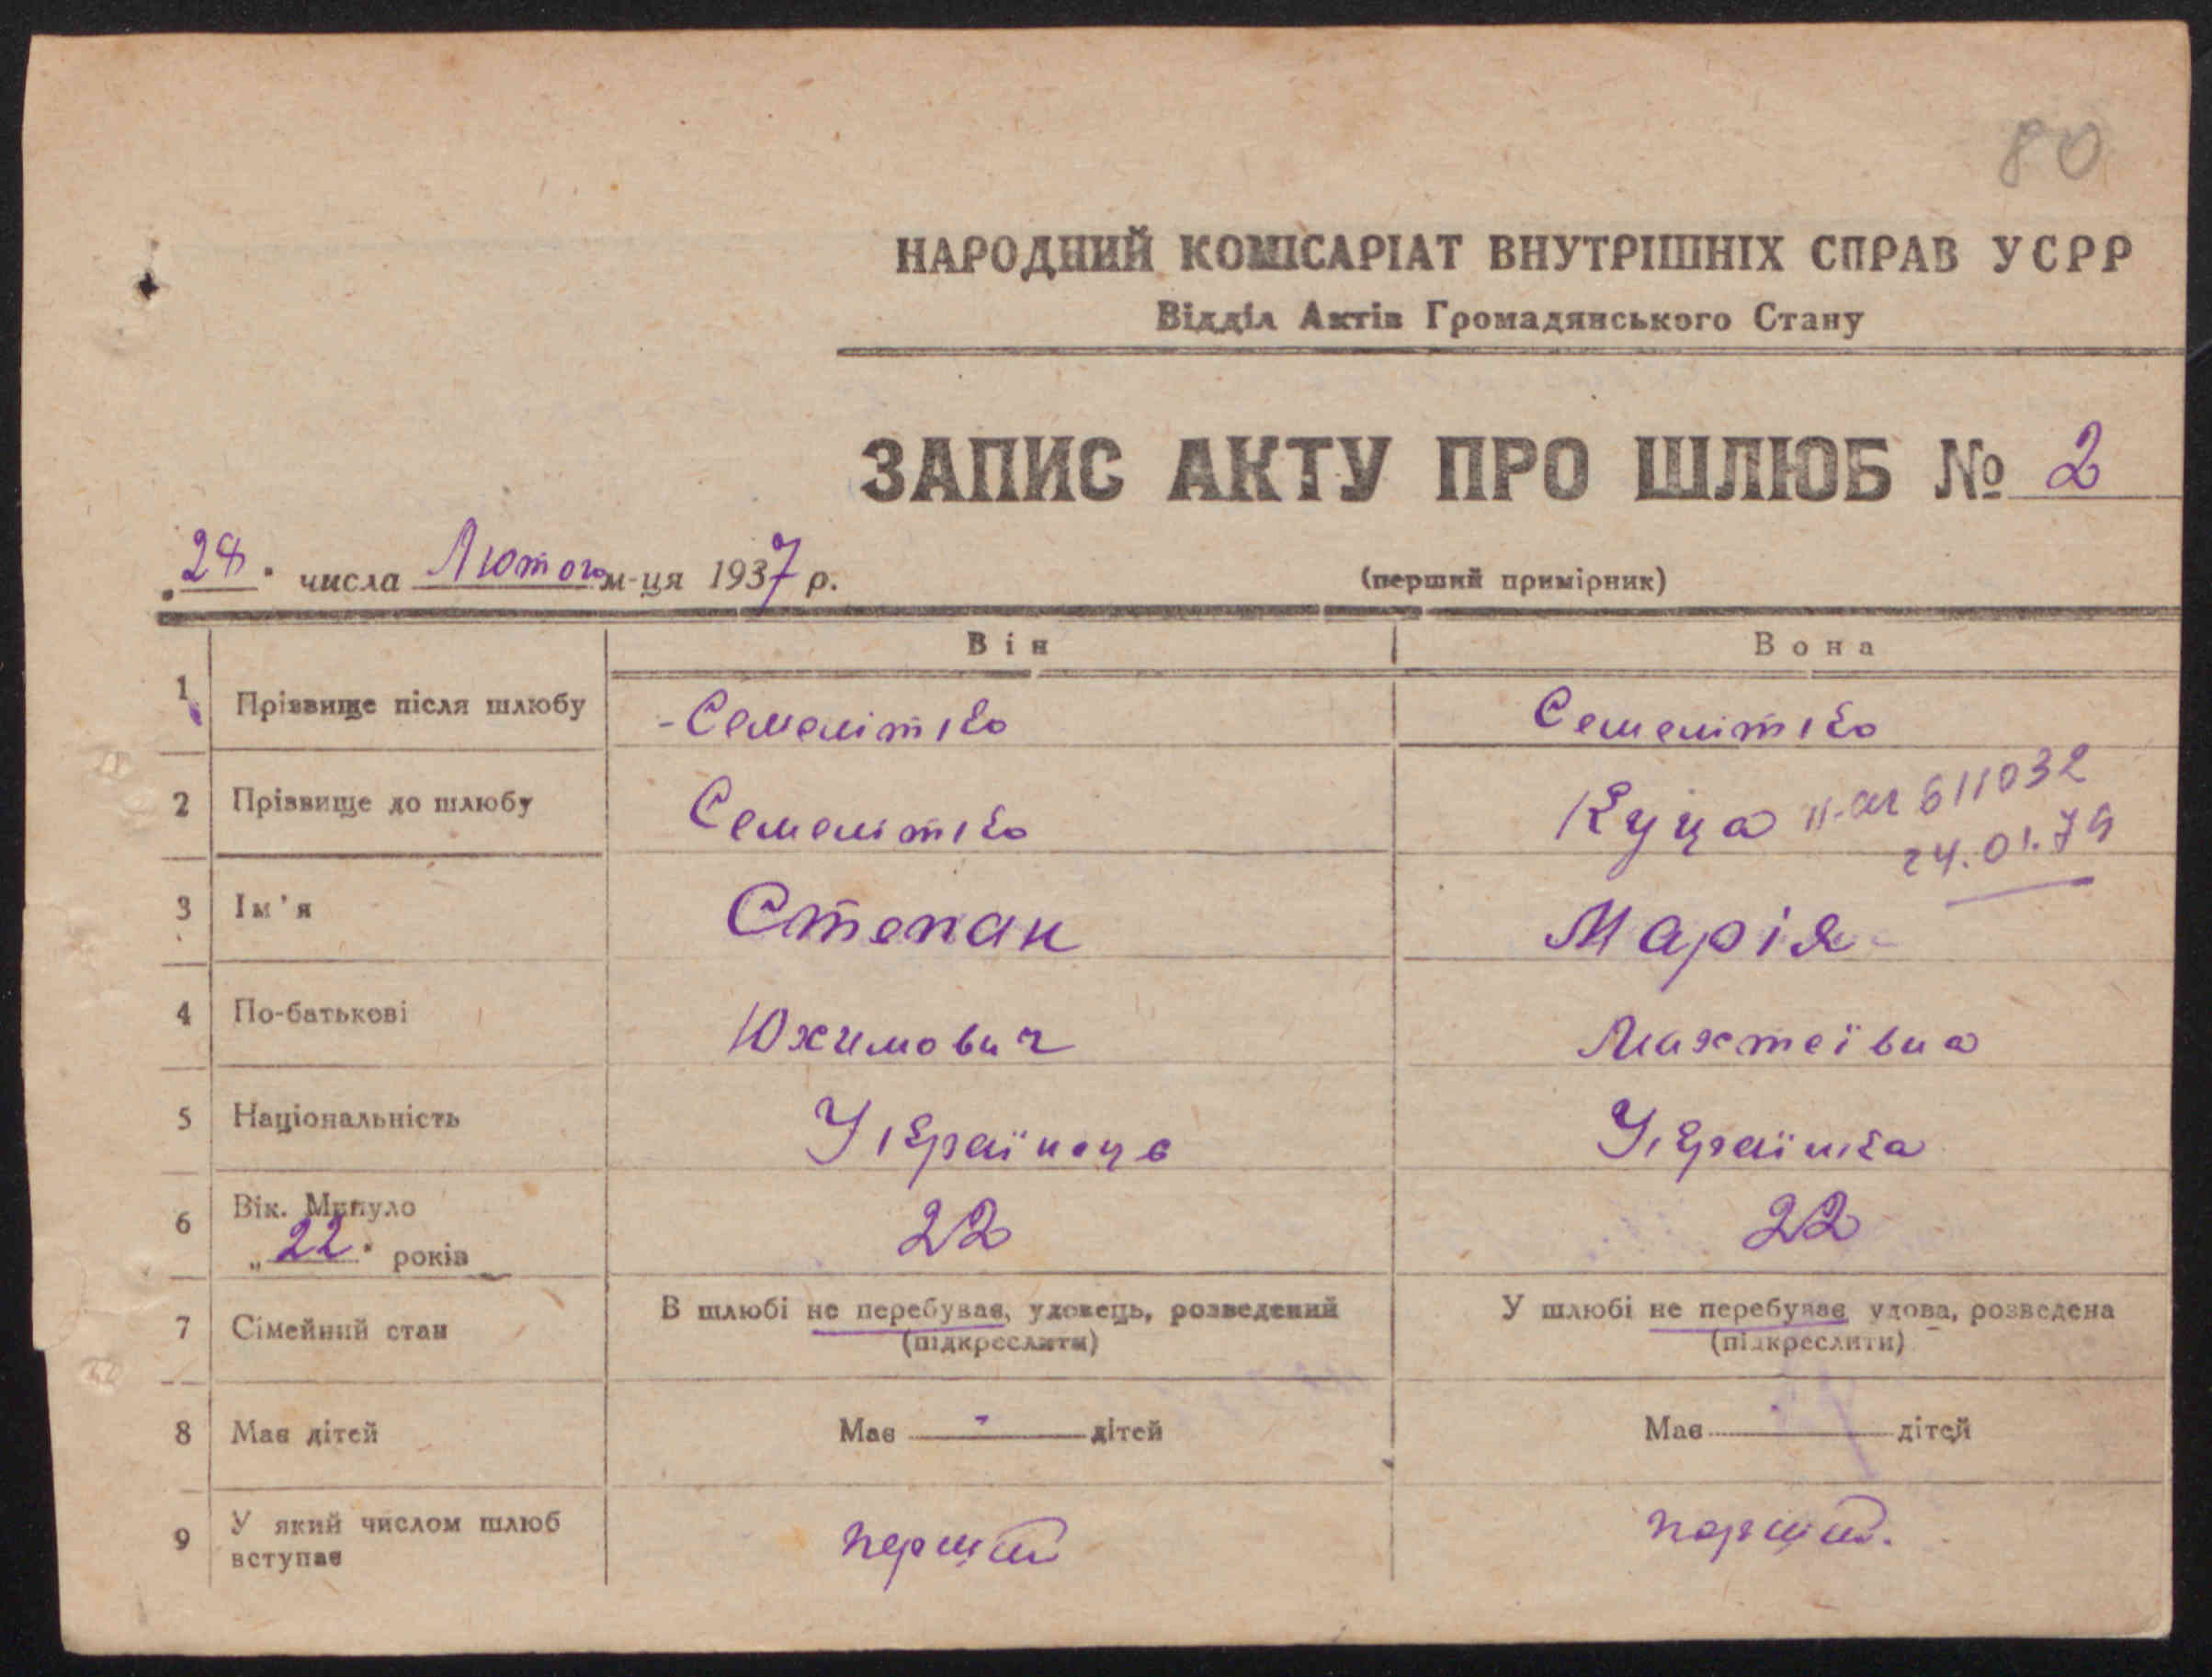 80
НАРОДНИЙ КОМІСАРІАТ ВНУТРІШНІХ СПРАВ УСРР
Відділ Актів Громадянського Стану
ЗАПИС АКТУ ПРО ШЛЮБ № 2
„28" числа Лютого м-ця 1937 р.
(перший примірник)
Він Вона
1 Прізвище після шлюбу -Семелітко Семелітко
2 Прізвище до шлюбу Семелітко Куца 611032
24.01.79
3 Ім'я Степан Марія
4 По-батькові Юхимович
5 Національність Українець Українка
6 Вік. Минуло 22 22
„22" років
7 Сімейний стан В шлюбі не перебував, удовець, розведений У шлюбі не перебуває удова, розведена
(підкреслити) (підкреслити)
8 Має дітей Має - дітей Має дітей
9 У який числом шлюб
вступає перший перший.